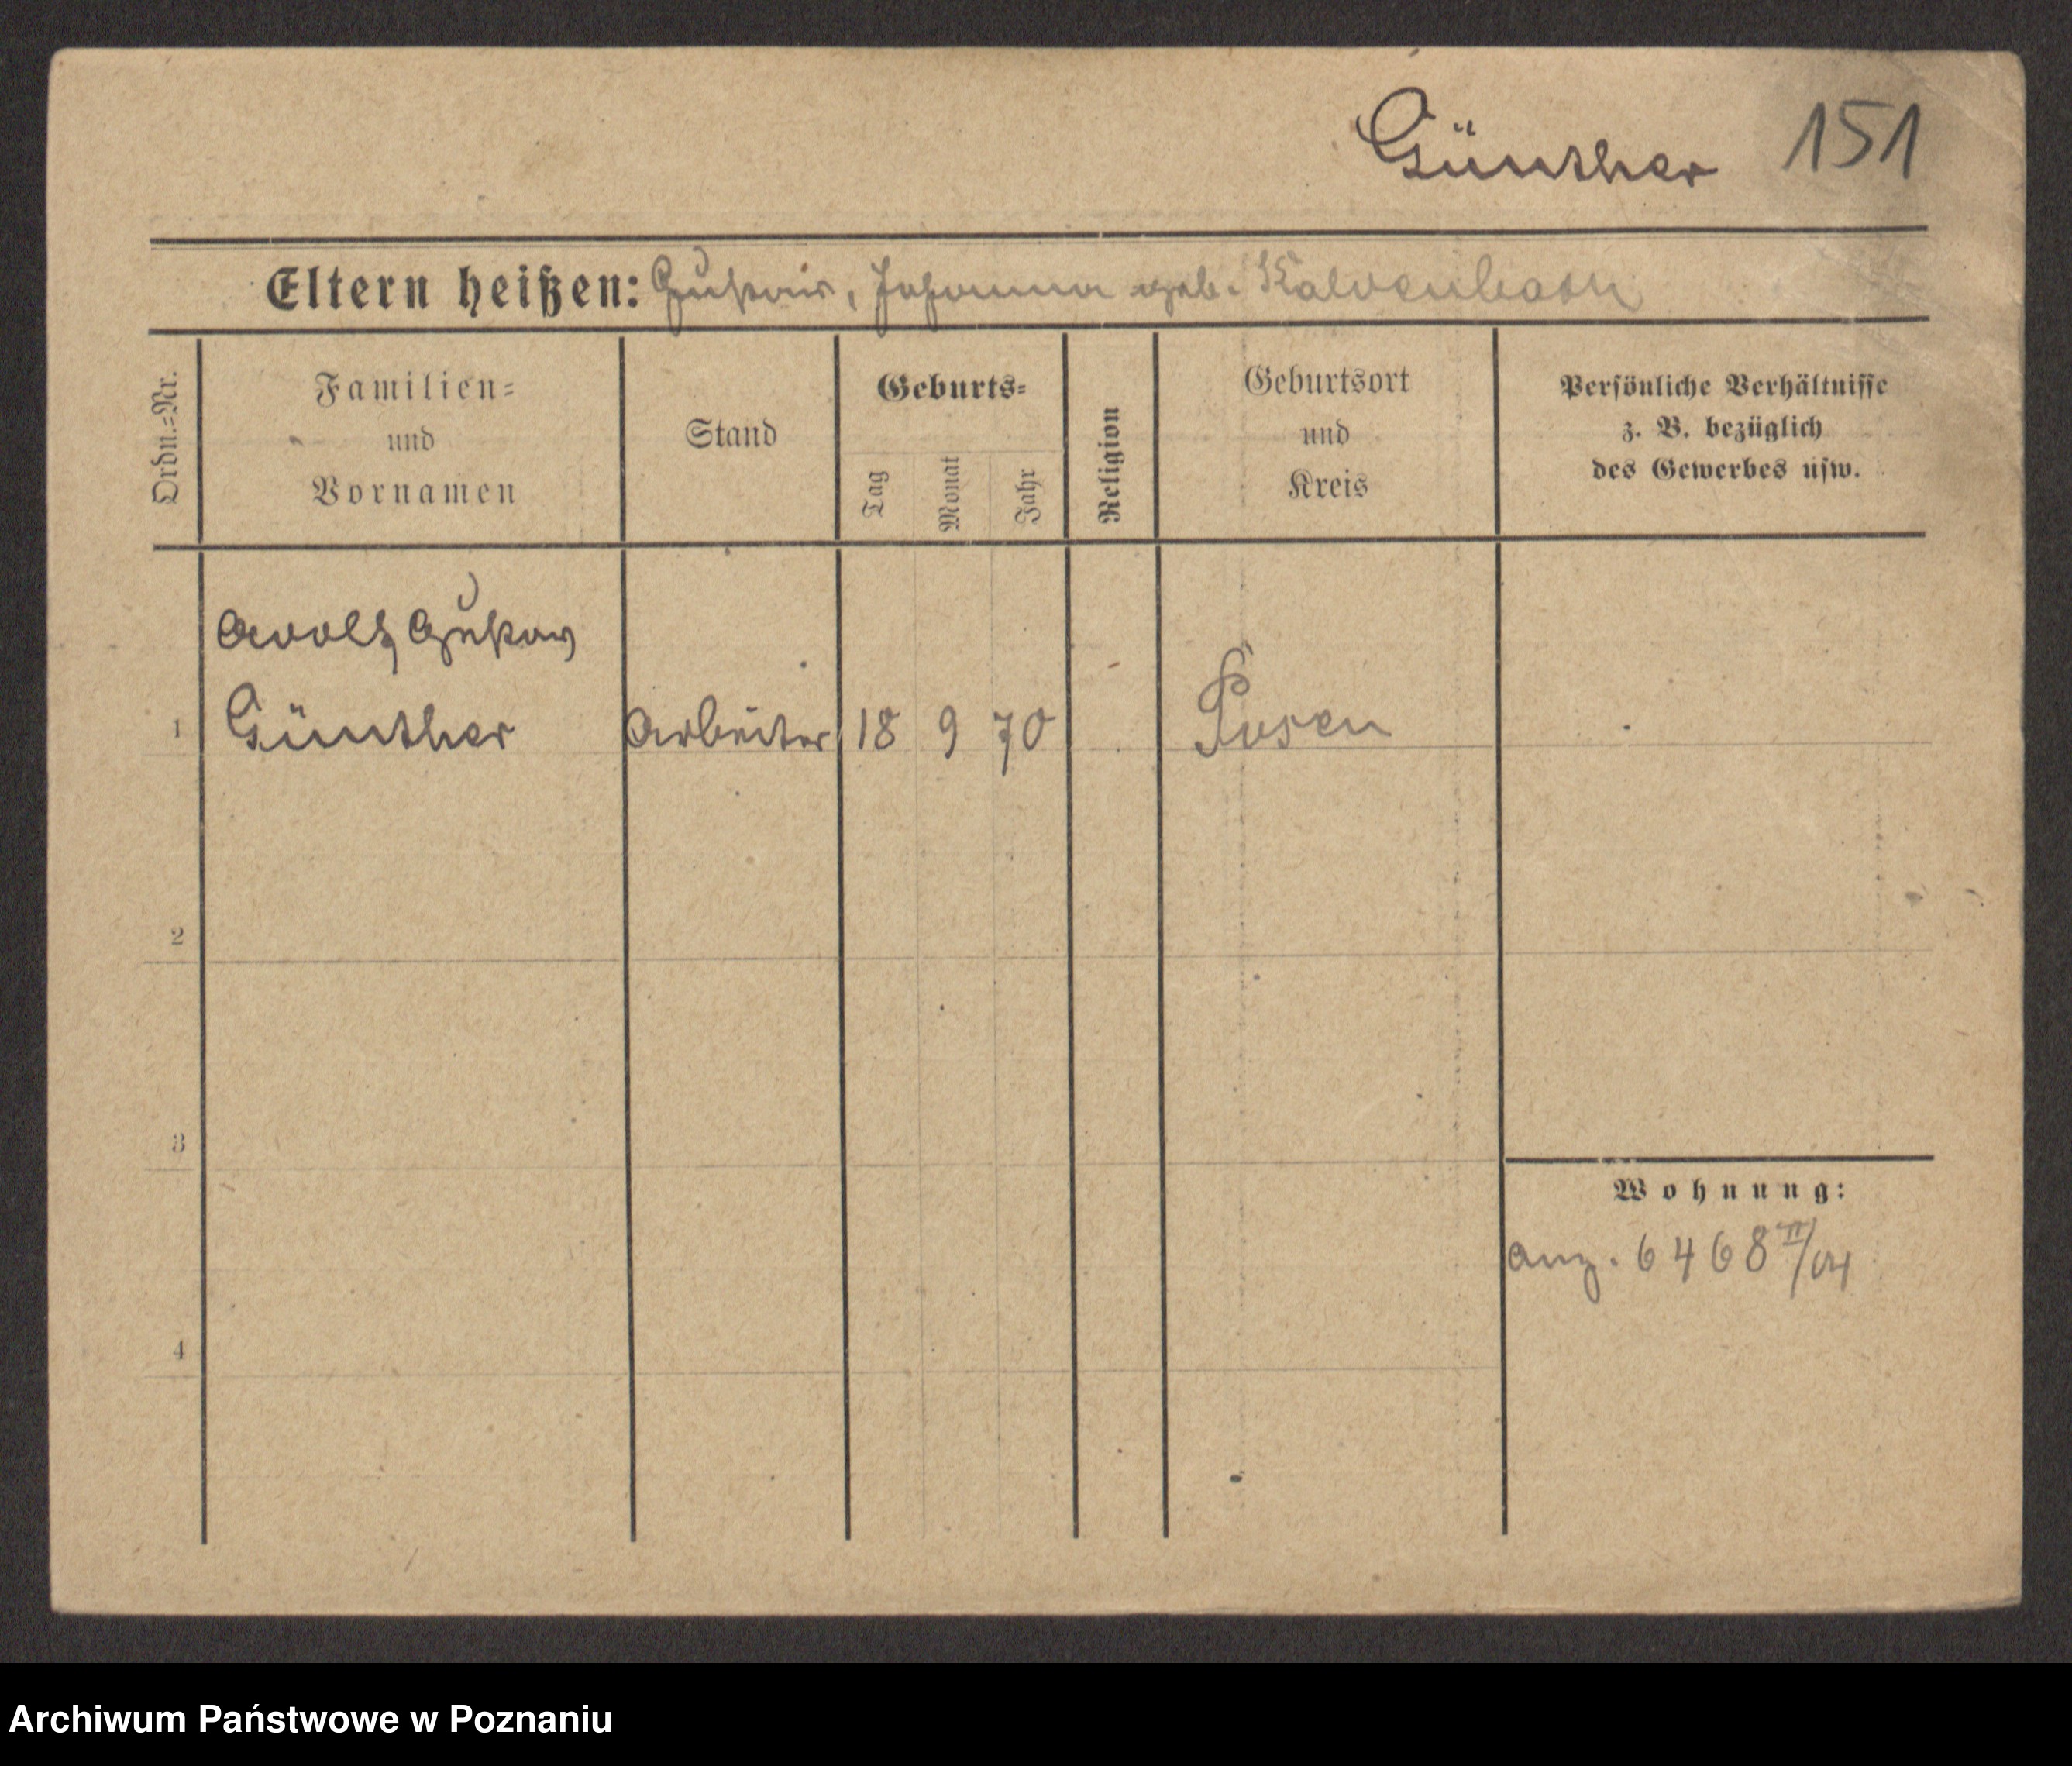 Günther 151
Eltern heißen: Gustav, Johanna geb.
Ordn.=Nr.
Familien=
und
Vornamen
Stand
Geburts=
Tag
Monat
Jahr
Religion
Geburtsort
und
Kreis
Persönliche Verhältnisse
z. B. bezüglich
des Gewerbes usw.
Adolf Gustav
1 Günther Arbeiter 18 9 70 Posen
2
3
Wohnung:
anz. 6468 II/04
4
Archiwum Państwowe w Poznaniu